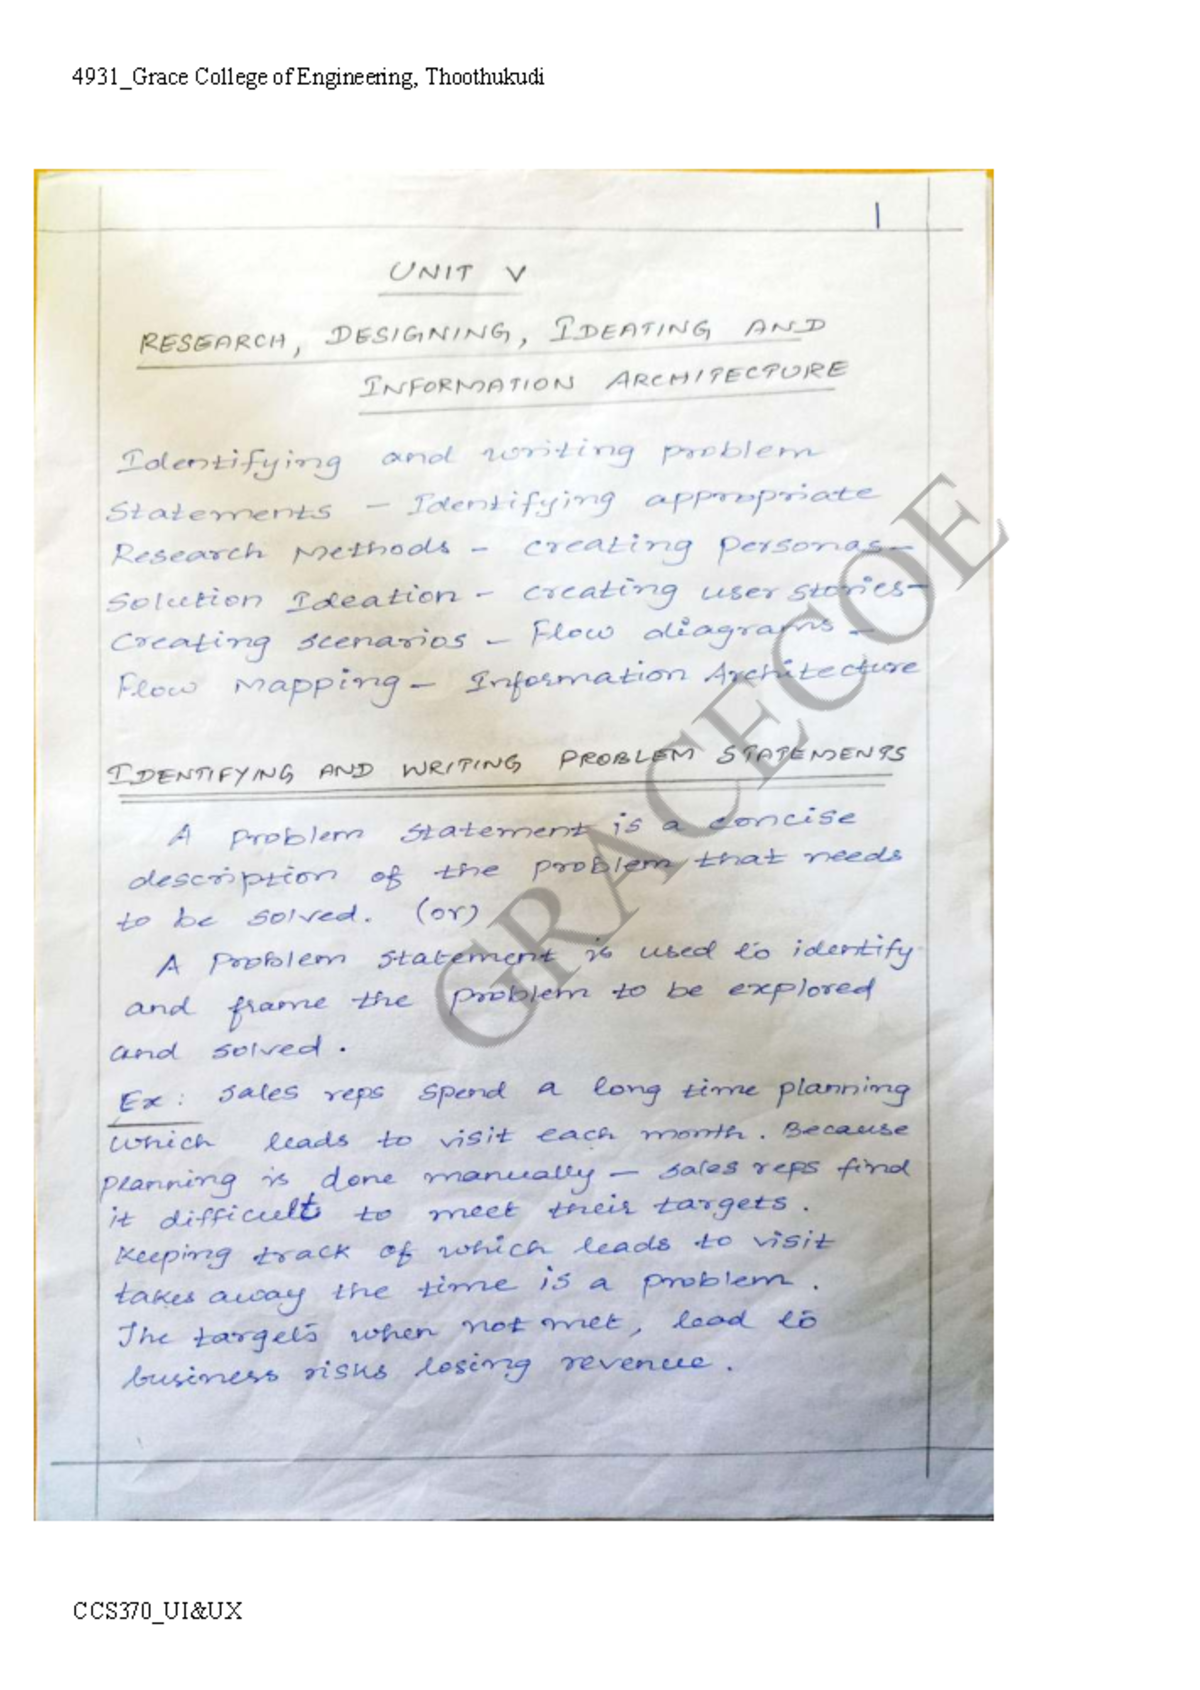 4931_Grace College of Engineering, Thoothukudi
1
UNIT V
RESEARCH, DESIGNING, IDEATING AND
INFORMATION ARCHITECTURE
Identifying and writing problem
Statements - Identifying appropriate
Research Methods - creating personas-
Solution Ideation - creating user stories-
Creating scenarios - Flow diagrams -
Flow Mapping - Information Architecture
IDENTIFYING AND WRITING PROBLEM STATEMENTS
A problem statement is a concise
description of the problem that needs
to be solved. (or)
A problem statement is used to identify
and frame the problem to be explored
and solved.
Ex: Sales reps spend a long time planning
which leads to visit each month. Because
planning is done manually - sales reps find
it difficult to meet their targets.
Keeping track of which leads to visit
takes away the time is a problem.
The targets when not met, lead to
business risks losing revenue.
GRACECOE
CCS370_UI&UX